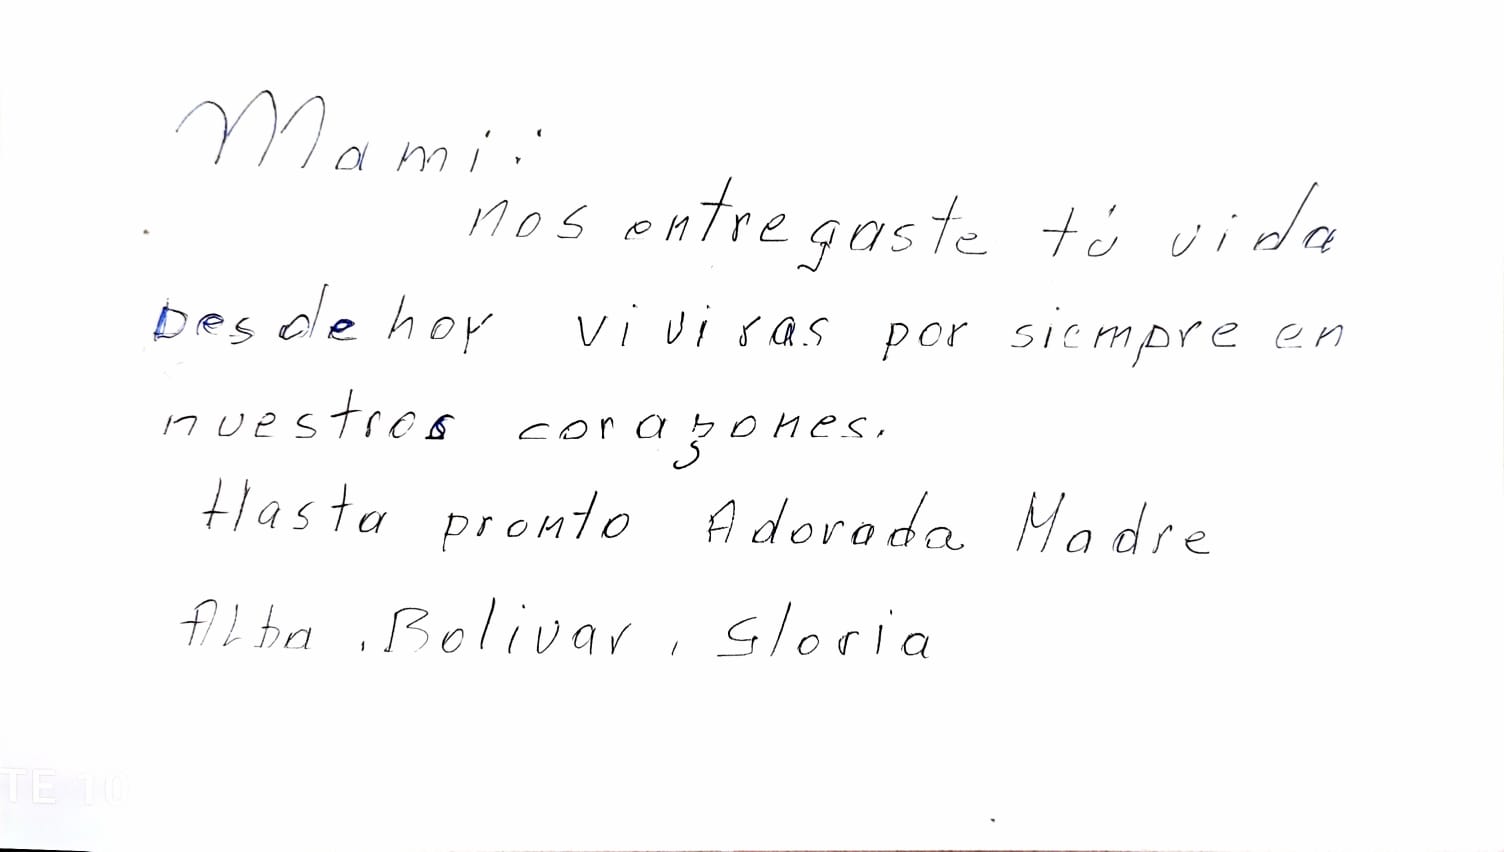 Mami:
nos entregaste tú vida
Desde hoy viviras por siempre en
nuestros corazones.
Hasta pronto Adorada Madre
Alba, Bolivar, Gloria
TE 10